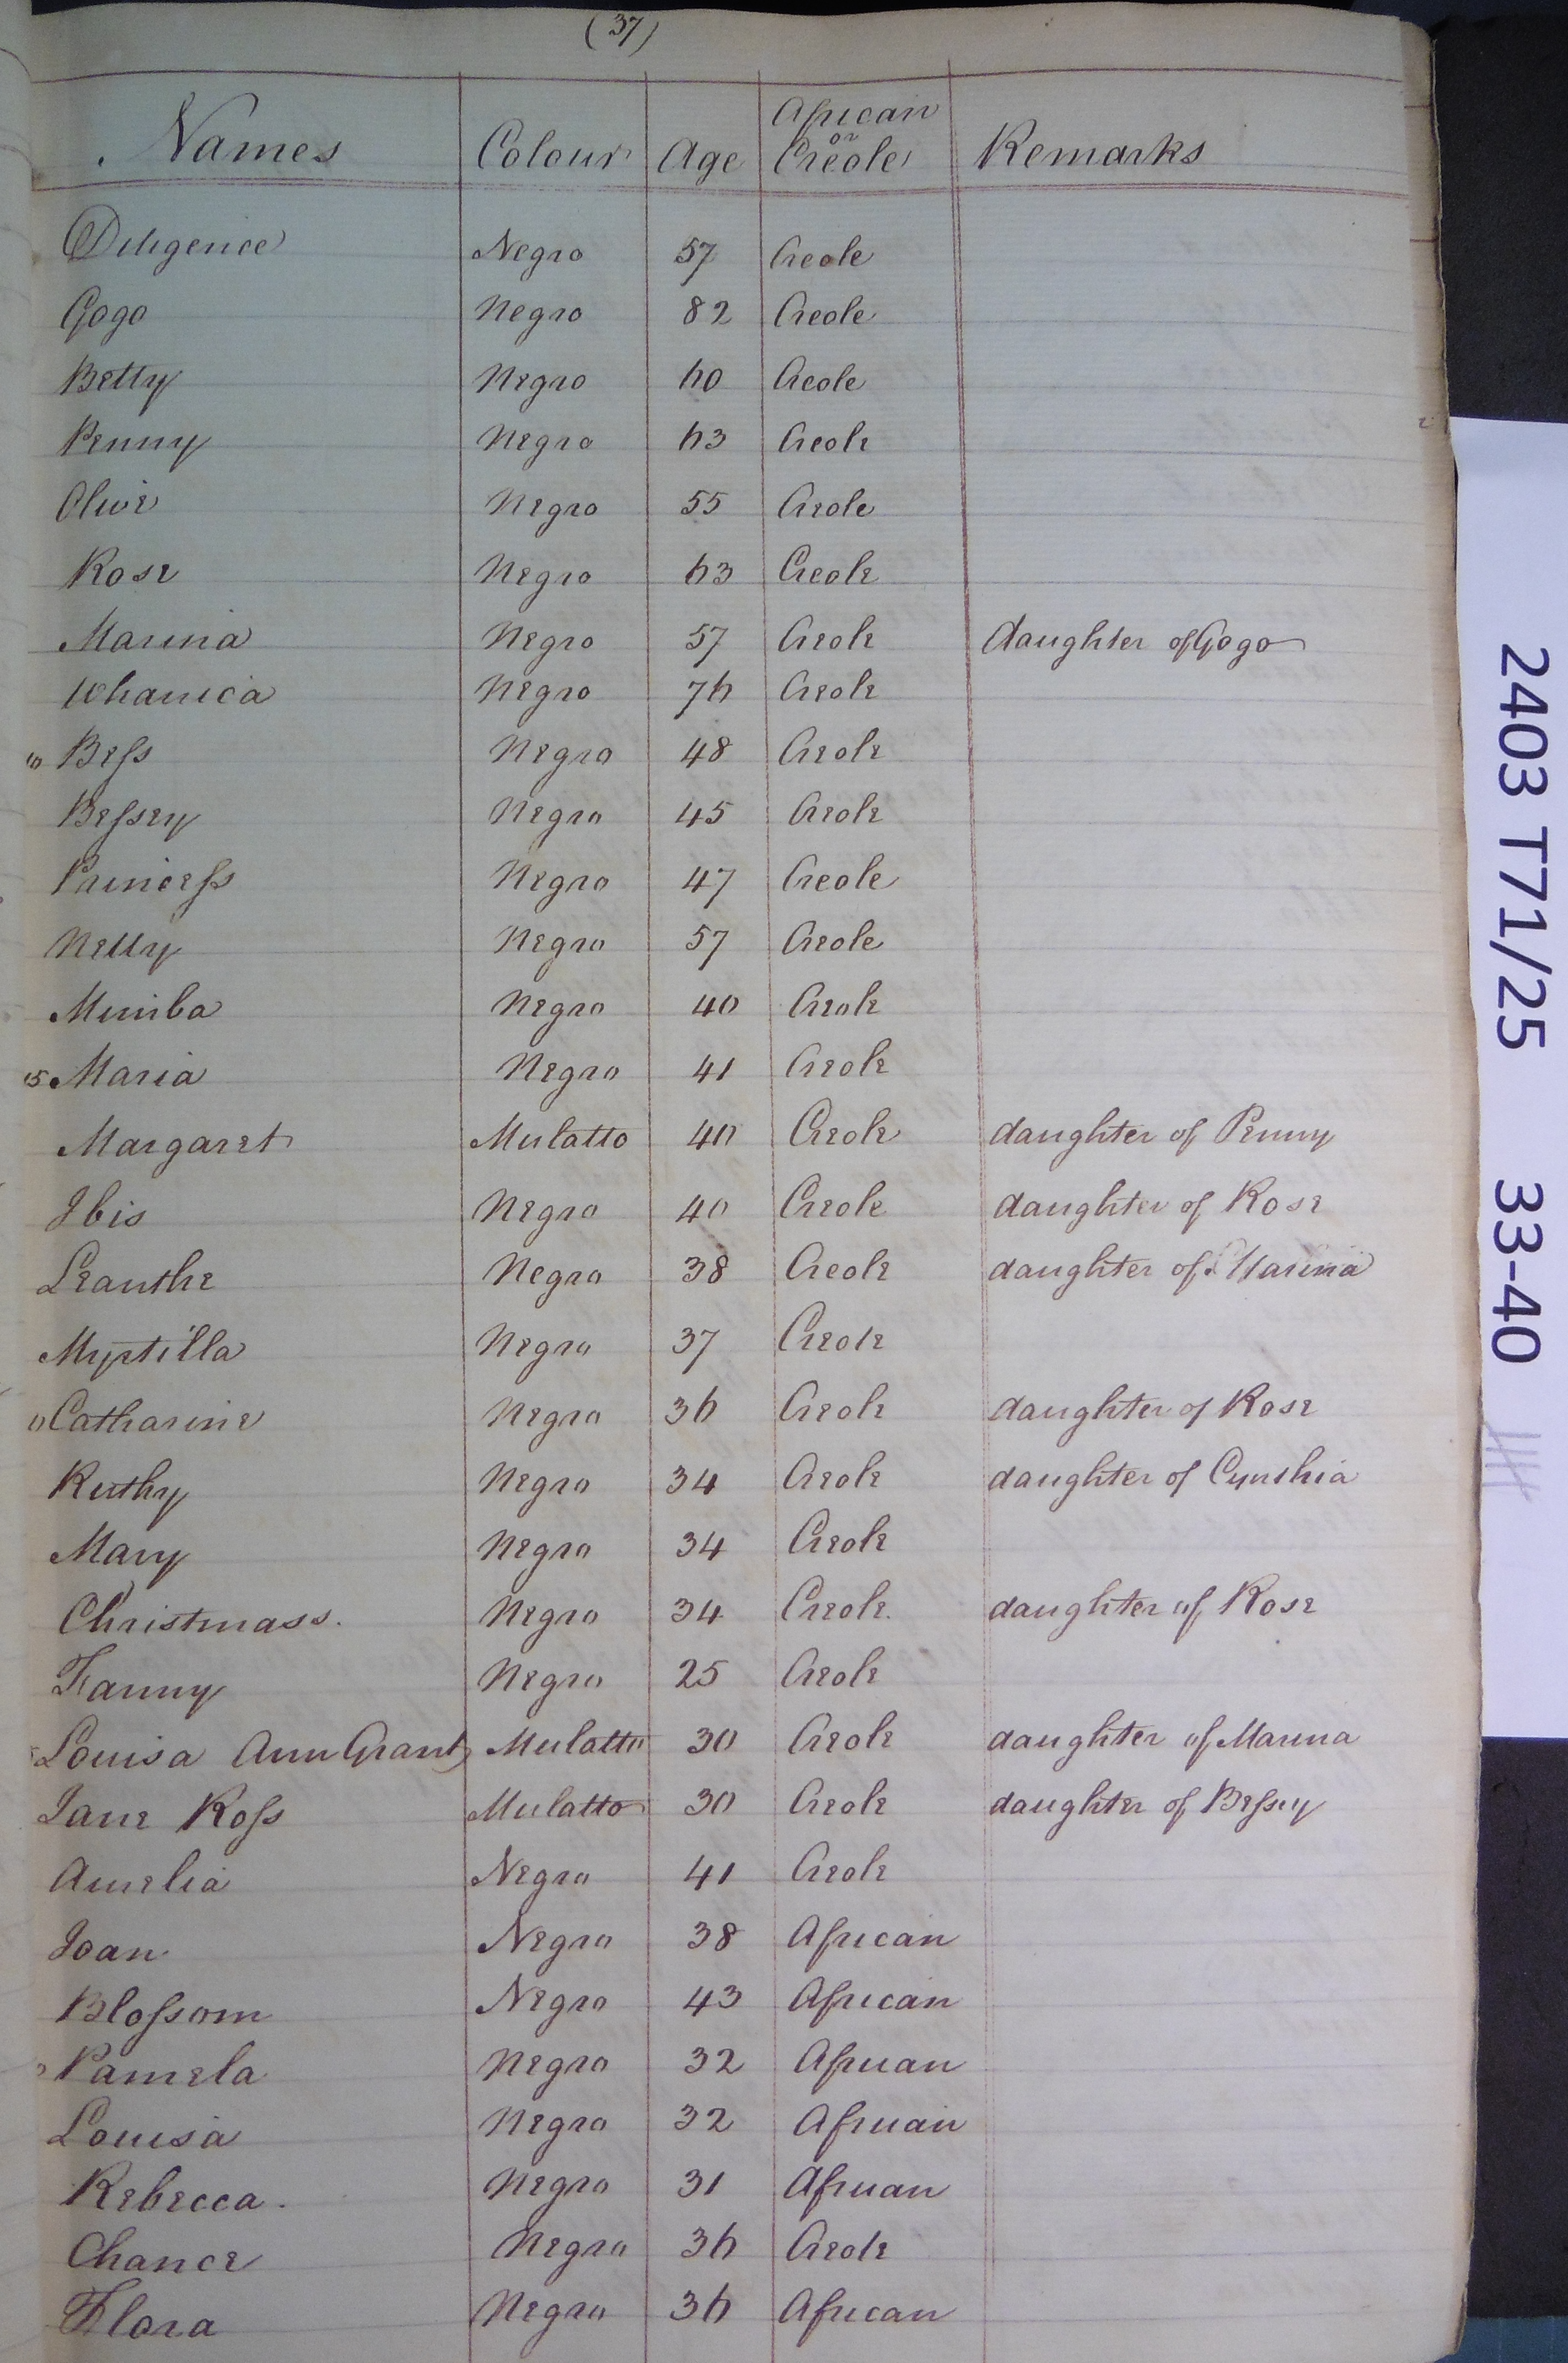 (37)
Names Colour Age African or Creole Remarks
Diligence Negro 57 Creole
Gogo Negro 82 Creole
Betty Negro 60 Creole
Penny Negro 63 Creole
Olive Negro 55 Creole
Rose Negro 63 Creole
Marina Negro 57 Creole daughter of Gogo
Negro 76 Creole
10 Bess Negro 48 Creole
Bessey Negro 45 Creole
Princess Negro 47 Creole
Negro 57 Creole
Mimba Negro 40 Creole
15 Maria Negro 41 Creole
Margaret Mulatto 40 Creole daughter of Penny
Ibis Negro 40 Creole daughter of Rose
Leanthe Negro 38 Creole daughter of Marina
Myrtilla Negro 37 Creole
Catharine Negro 36 Creole daughter of Rose
Ruthy Negro 34 Creole daughter of Cynthia
Mary Negro 34 Creole
Christmass. Negro 34 Creole. daughter of Rose
Fanny Negro 25 Creole
Louisa Ann Grant Mulatto 30 Creole daughter of Marina
Jane Ross Mulatto 30 Creole daughter of Bessey
Amelia Negro 41 Creole
Joan Negro 38 African
Blossom Negro 43 African
Pamela Negro 32 African
Louisa Negro 32 African
Rebecca. Negro 31 African
Chance Negro 36 Creole
Flora Negro 36 African
2403 T71/25 33-40